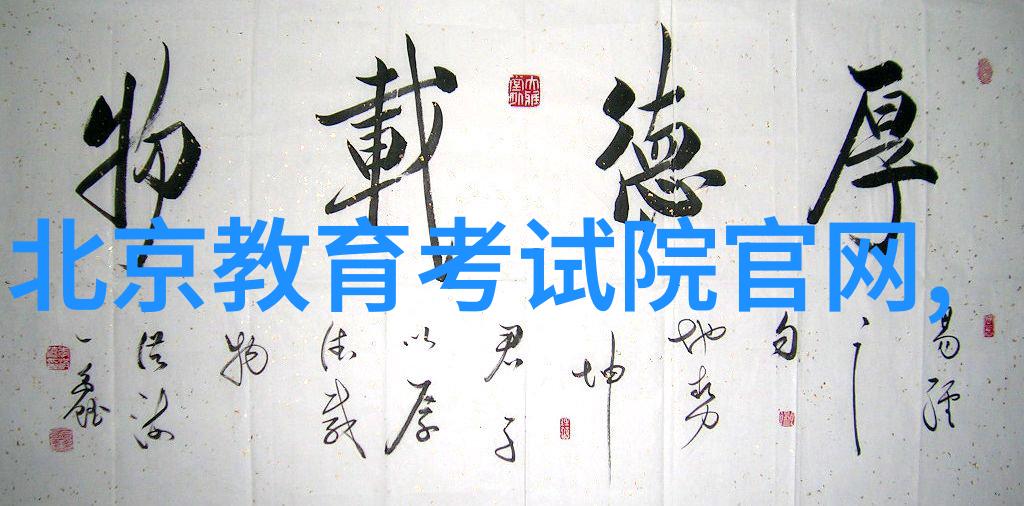 厚德載物
北京教育考试院官网,
易經
之
句
地势
坤
君子
以厚
德载
物